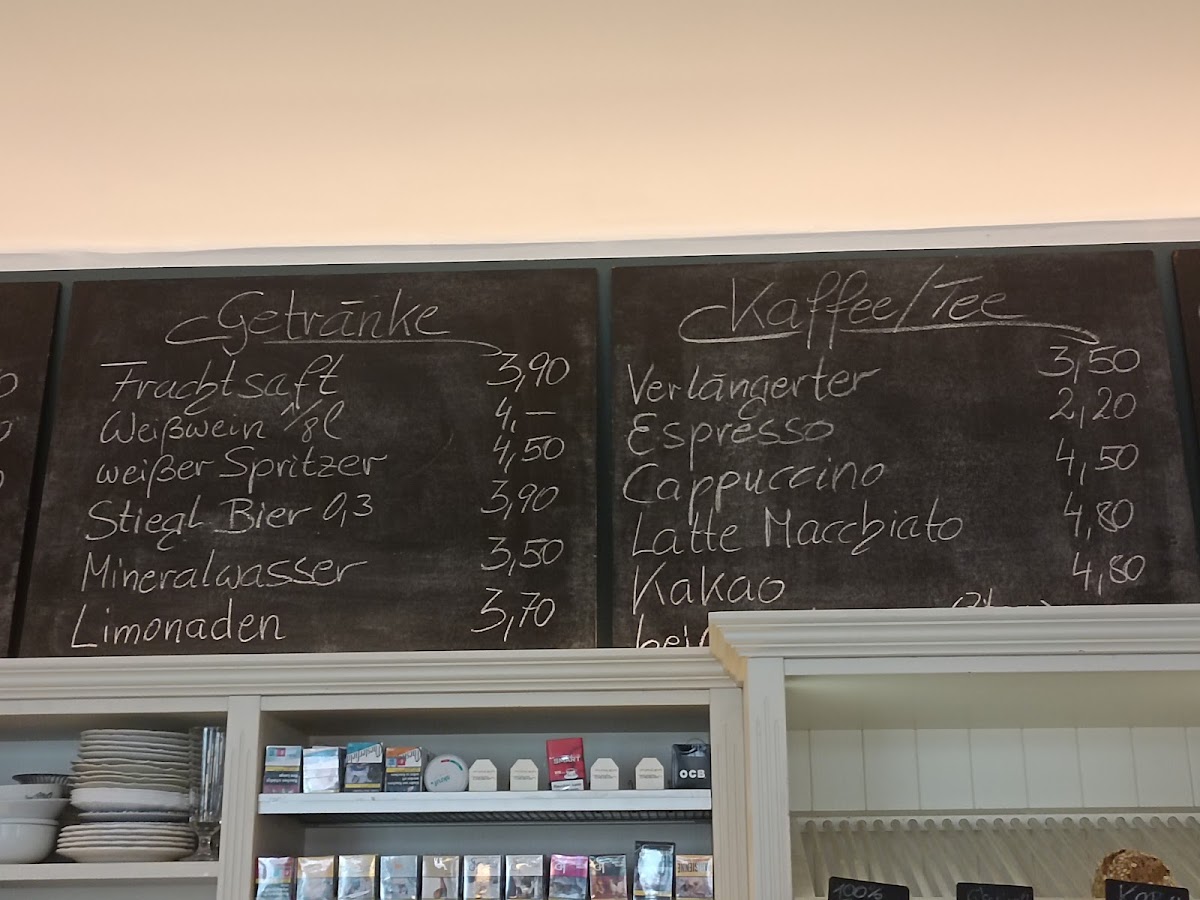 Getränke
Fruchtsaft 3,90
Weißwein 1/8l 4,—
weißer Spritzer 4,50
Stiegl Bier 0,3 3,90
Mineralwasser 3,50
Limonaden 3,70
Kaffee/Tee
Verlängerter 3,50
Espresso 2,20
Cappuccino 4,50
Latte Macchiato 4,80
Kakao 4,80
SMART
OCB
100%